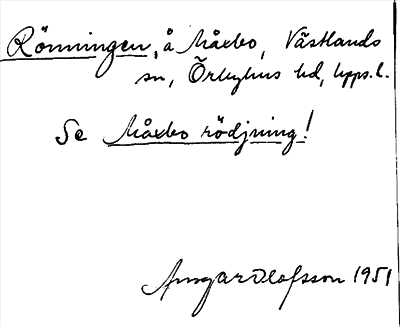 Rönningen, å Måxbo, Västlands
sn, Örbyhus hd, Upps. l.
Se Måxbo rödjning!
Ansgar Olofsson 1951